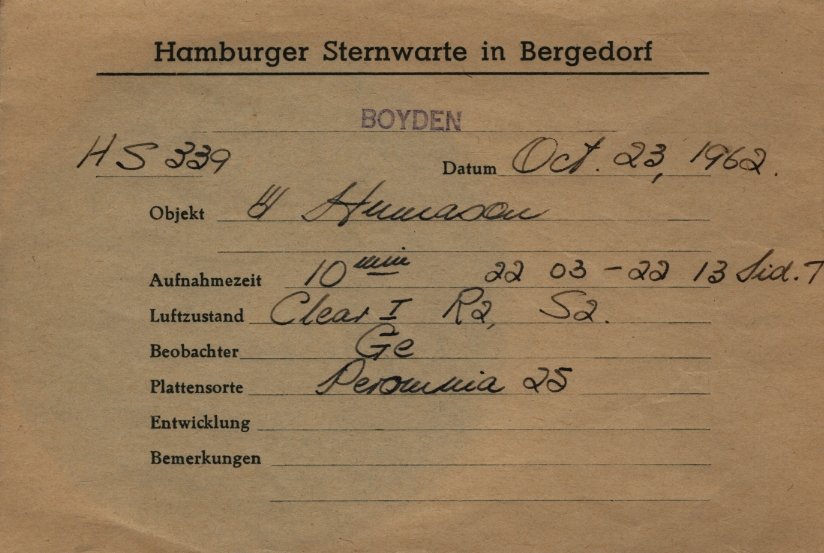 Hamburger Sternwarte in Bergedorf
BOYDEN
HS 339 Datum Oct. 23, 1962.
Objekt Humason
Aufnahmezeit 10 min 22 03 - 22 13 Sid. T
Luftzustand Clear I R2, S2.
Beobachter Ge
Plattensorte 25
Entwicklung
Bemerkungen